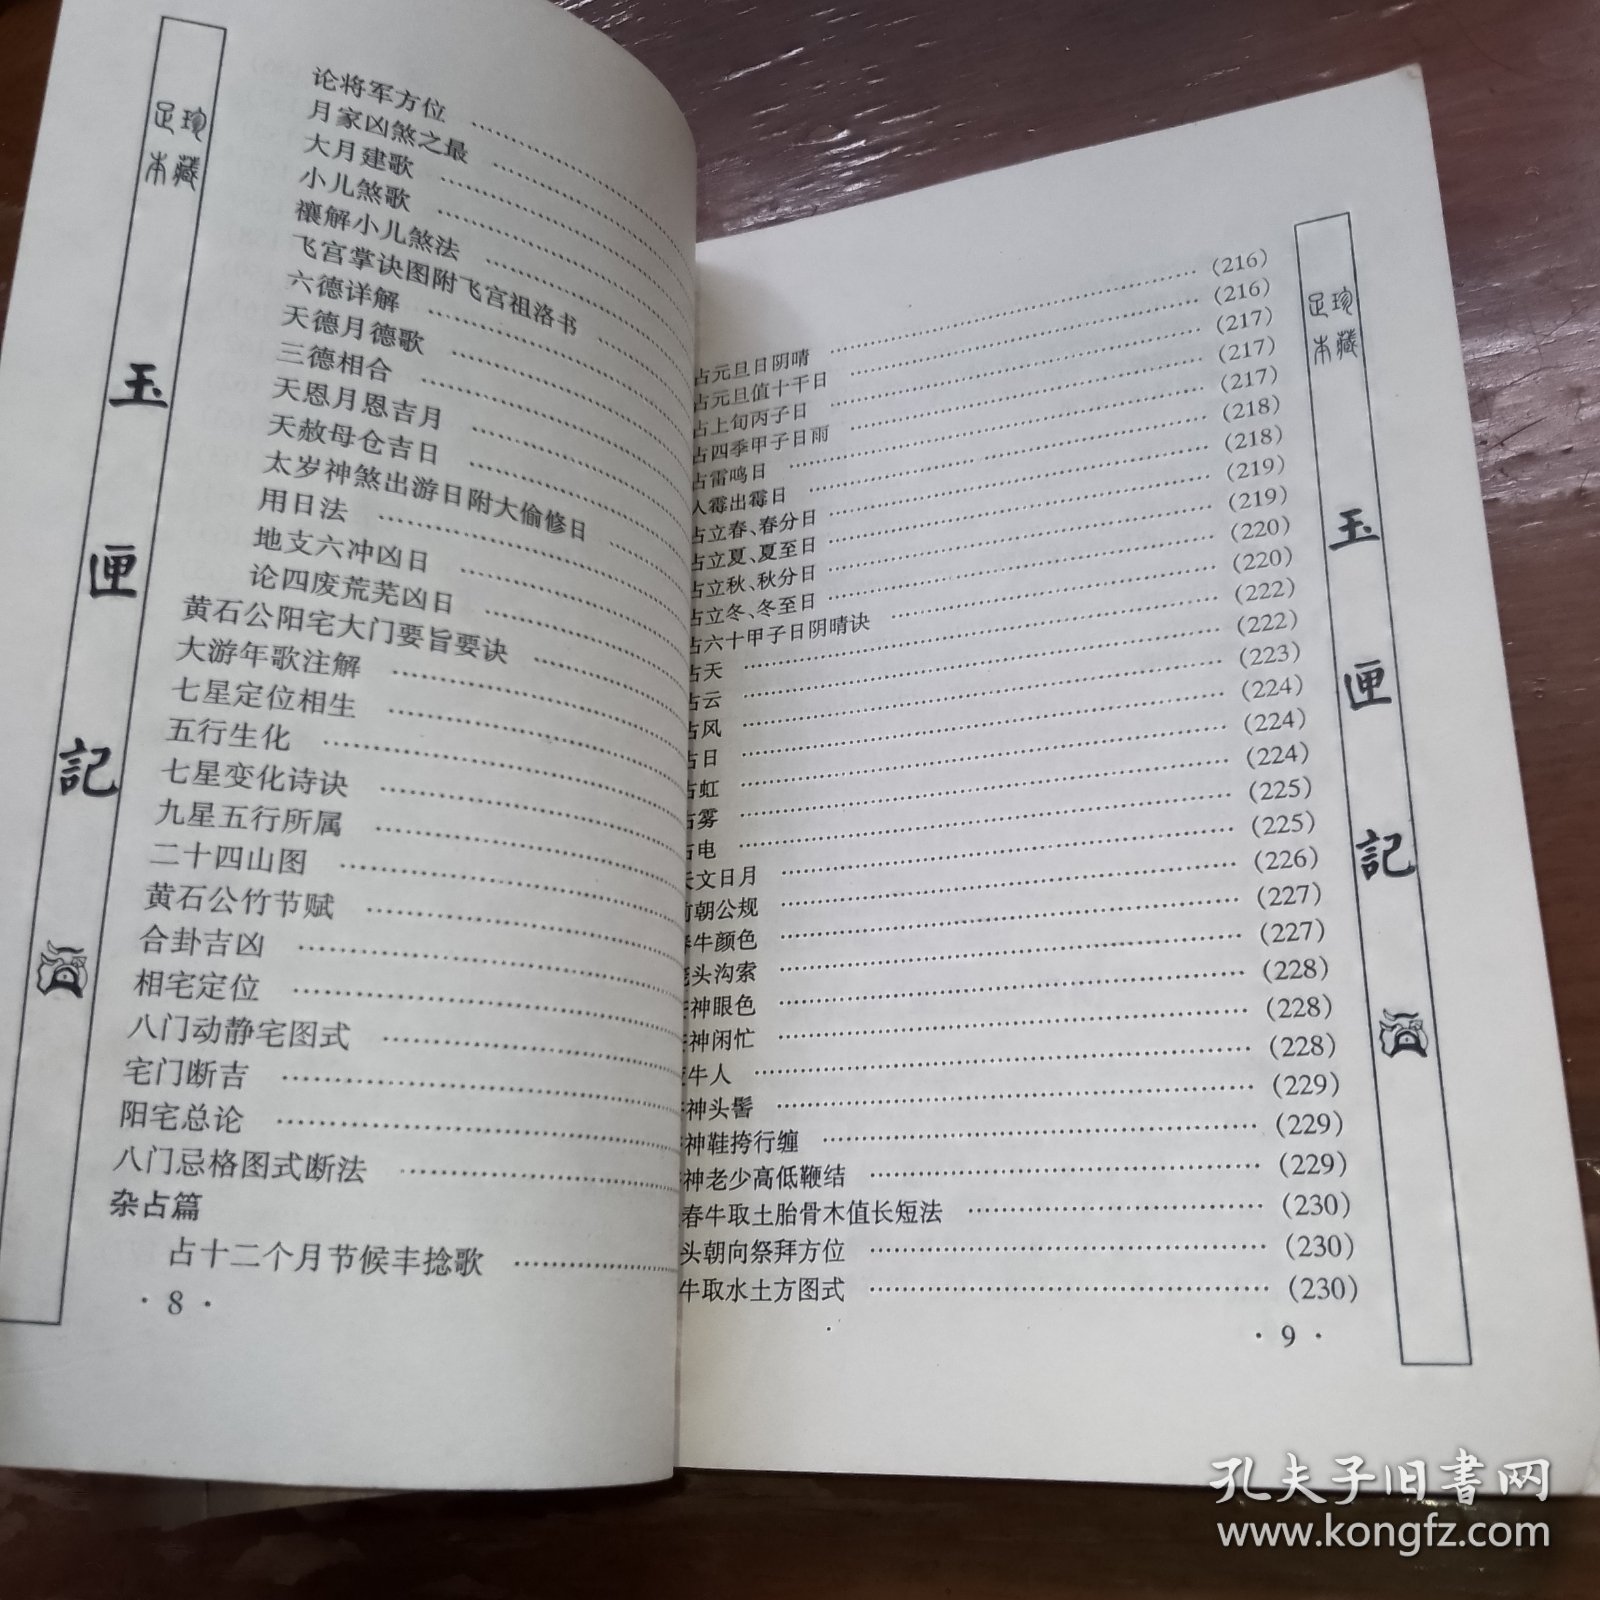 足本
珍藏
玉匣記
论将军方位
月家凶煞之最
大月建歌
小儿煞歌
禳解小儿煞法
飞宫掌诀图附飞宫祖洛书
六德详解
天德月德歌
三德相合
天恩月恩吉月
天赦母仓吉日
太岁神煞出游日附大偷修日
用日法
地支六冲凶日
论四废荒芜凶日
黄石公阳宅大门要旨要诀
大游年歌注解
七星定位相生
五行生化
七星变化诗诀
九星五行所属
二十四山图
黄石公竹节赋
合卦吉凶
相宅定位
八门动静宅图式
宅门断吉
阳宅总论
八门忌格图式断法
杂占篇
占十二个月节候丰捻歌
· 8 ·
占元旦日阴晴 (216)
占元旦值十干日 (216)
占上旬丙子日 (217)
占四季甲子日雨 (217)
占雷鸣日 (217)
入霉出霉日 (218)
占立春、春分日 (218)
占立夏、夏至日 (219)
占立秋、秋分日 (219)
占立冬、冬至日 (220)
占六十甲子日阴晴诀 (220)
占天 (222)
占云 (222)
占风 (223)
占日 (224)
占虹 (224)
占雾 (224)
占电 (225)
天文日月 (225)
朝公规 (226)
牛颜色 (227)
头沟索 (227)
神眼色 (228)
神闲忙 (228)
牛人 (228)
神头髻 (229)
神鞋挎行缠 (229)
神老少高低鞭结 (229)
春牛取土胎骨木值长短法 (230)
头朝向祭拜方位 (230)
牛取水土方图式 (230)
· 9 ·
足本
珍藏
玉匣記
孔夫子旧书网
www.kongfz.com